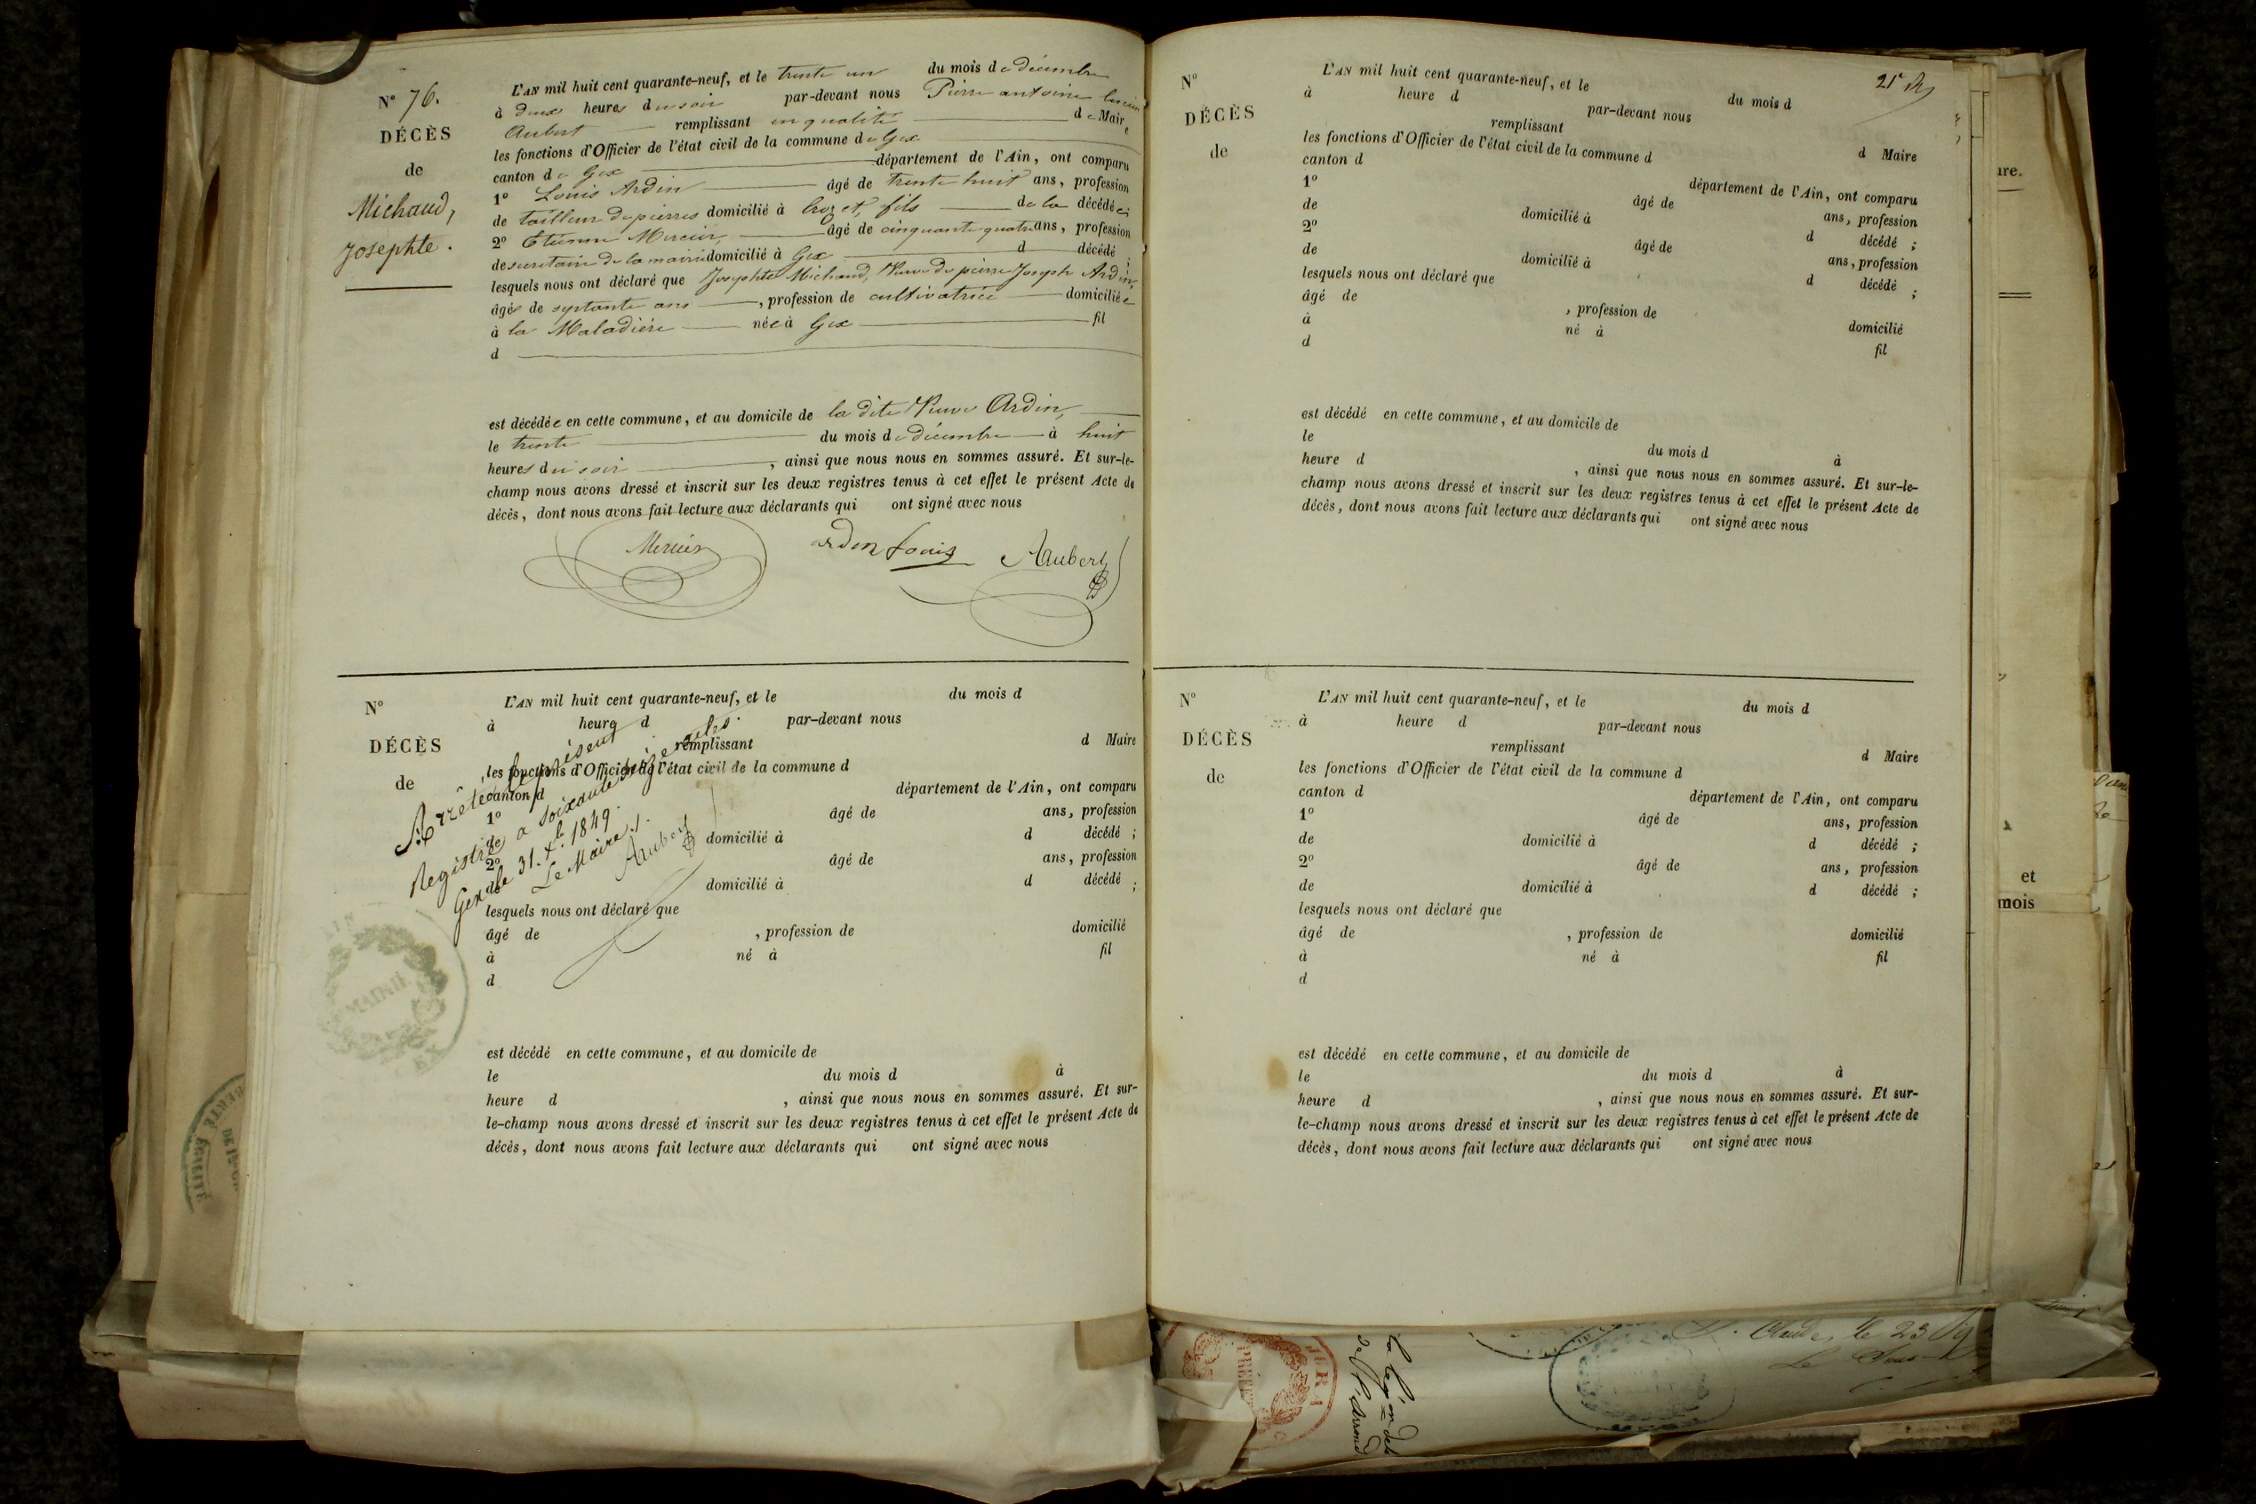 N° 76.
DÉCÈS
de
Michaud,
Josephte.
L'AN mil huit cent quarante-neuf, et le trente un du mois de décembre
à deux heures du soir par-devant nous Pierre antoine
Aubert remplissant en qualité de Maire
les fonctions d'Officier de l'état civil de la commune de Gex
canton de Gex département de l'Ain, ont comparu
1° Louis Ardin âgé de trente huit ans, profession
de tailleur de pierres domicilié à Crozet, fils de la décédée;
2° Etienne Mercier, âgé de cinquante quatre ans, profession
de secretaire de la mairie domicilié à Gex d décédé ;
lesquels nous ont déclaré que Josephte Michaud, Veuve de pierre Joseph Ardin,
âgée de septante ans , profession de cultivatrice domiciliée
à la Maladière née à Gex fil
d
est décédée en cette commune, et au domicile de la dite Veuve Ardin,
le trente du mois de décembre à huit
heures du soir , ainsi que nous nous en sommes assuré. Et sur-le-
champ nous avons dressé et inscrit sur les deux registres tenus à cet effet le présent Acte de
décès, dont nous avons fait lecture aux déclarants qui ont signé avec nous
Mercier ardin Louis Aubert
N°
DÉCÈS
de
L'AN mil huit cent quarante-neuf, et le du mois d
à heure d par-devant nous
remplissant d Maire
les fonctions d'Officier de l'état civil de la commune d
canton d département de l'Ain, ont comparu
1° âgé de ans, profession
de domicilié à d décédé ;
2° âgé de ans, profession
de domicilié à d décédé ;
lesquels nous ont déclaré que
âgé de , profession de domicilié
à né à fil
d
Arrêté le présent
Registre a Soixante seize actes.
Gex le 31. Xb 1849.
Le Maire
Aubert
MAIRIE
est décédé en cette commune, et au domicile de
le du mois d à
heure d , ainsi que nous nous en sommes assuré. Et sur-
le-champ nous avons dressé et inscrit sur les deux registres tenus à cet effet le présent Acte de
décès, dont nous avons fait lecture aux déclarants qui ont signé avec nous
21e
N°
DÉCÈS
de
L'AN mil huit cent quarante-neuf, et le du mois d
à heure d par-devant nous
remplissant d Maire
les fonctions d'Officier de l'état civil de la commune d
canton d département de l'Ain, ont comparu
1° âgé de ans, profession
de domicilié à d décédé ;
2° âgé de ans, profession
de domicilié à d décédé ;
lesquels nous ont déclaré que
âgé de , profession de domicilié
à né à fil
d
est décédé en cette commune, et au domicile de
le du mois d à
heure d , ainsi que nous nous en sommes assuré. Et sur-le-
champ nous avons dressé et inscrit sur les deux registres tenus à cet effet le présent Acte de
décès, dont nous avons fait lecture aux déclarants qui ont signé avec nous
N°
DÉCÈS
de
L'AN mil huit cent quarante-neuf, et le du mois d
à heure d par-devant nous
remplissant d Maire
les fonctions d'Officier de l'état civil de la commune d
canton d département de l'Ain, ont comparu
1° âgé de ans, profession
de domicilié à d décédé ;
2° âgé de ans, profession
de domicilié à d décédé ;
lesquels nous ont déclaré que
âgé de , profession de domicilié
à né à fil
d
est décédé en cette commune, et au domicile de
le du mois d à
heure d , ainsi que nous nous en sommes assuré. Et sur-
le-champ nous avons dressé et inscrit sur les deux registres tenus à cet effet le présent Acte de
décès, dont nous avons fait lecture aux déclarants qui ont signé avec nous
et
mois
ÉGALITÉ
JURA
Claude, le 23